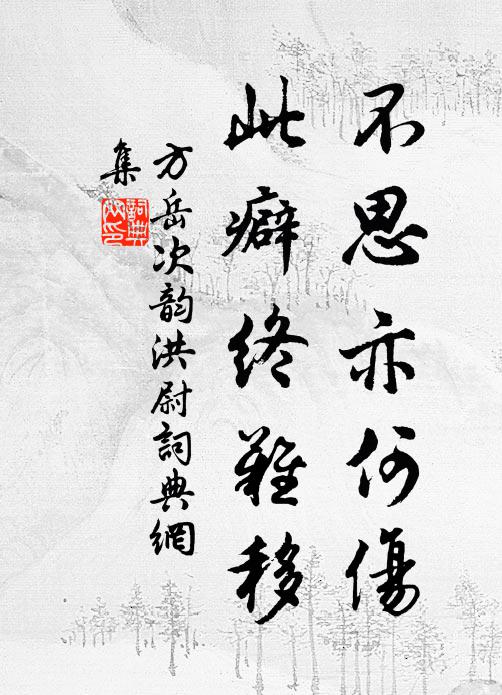 不思亦何傷
此癖終難移
方岳次韵洪尉詞典網
集
詞典网印